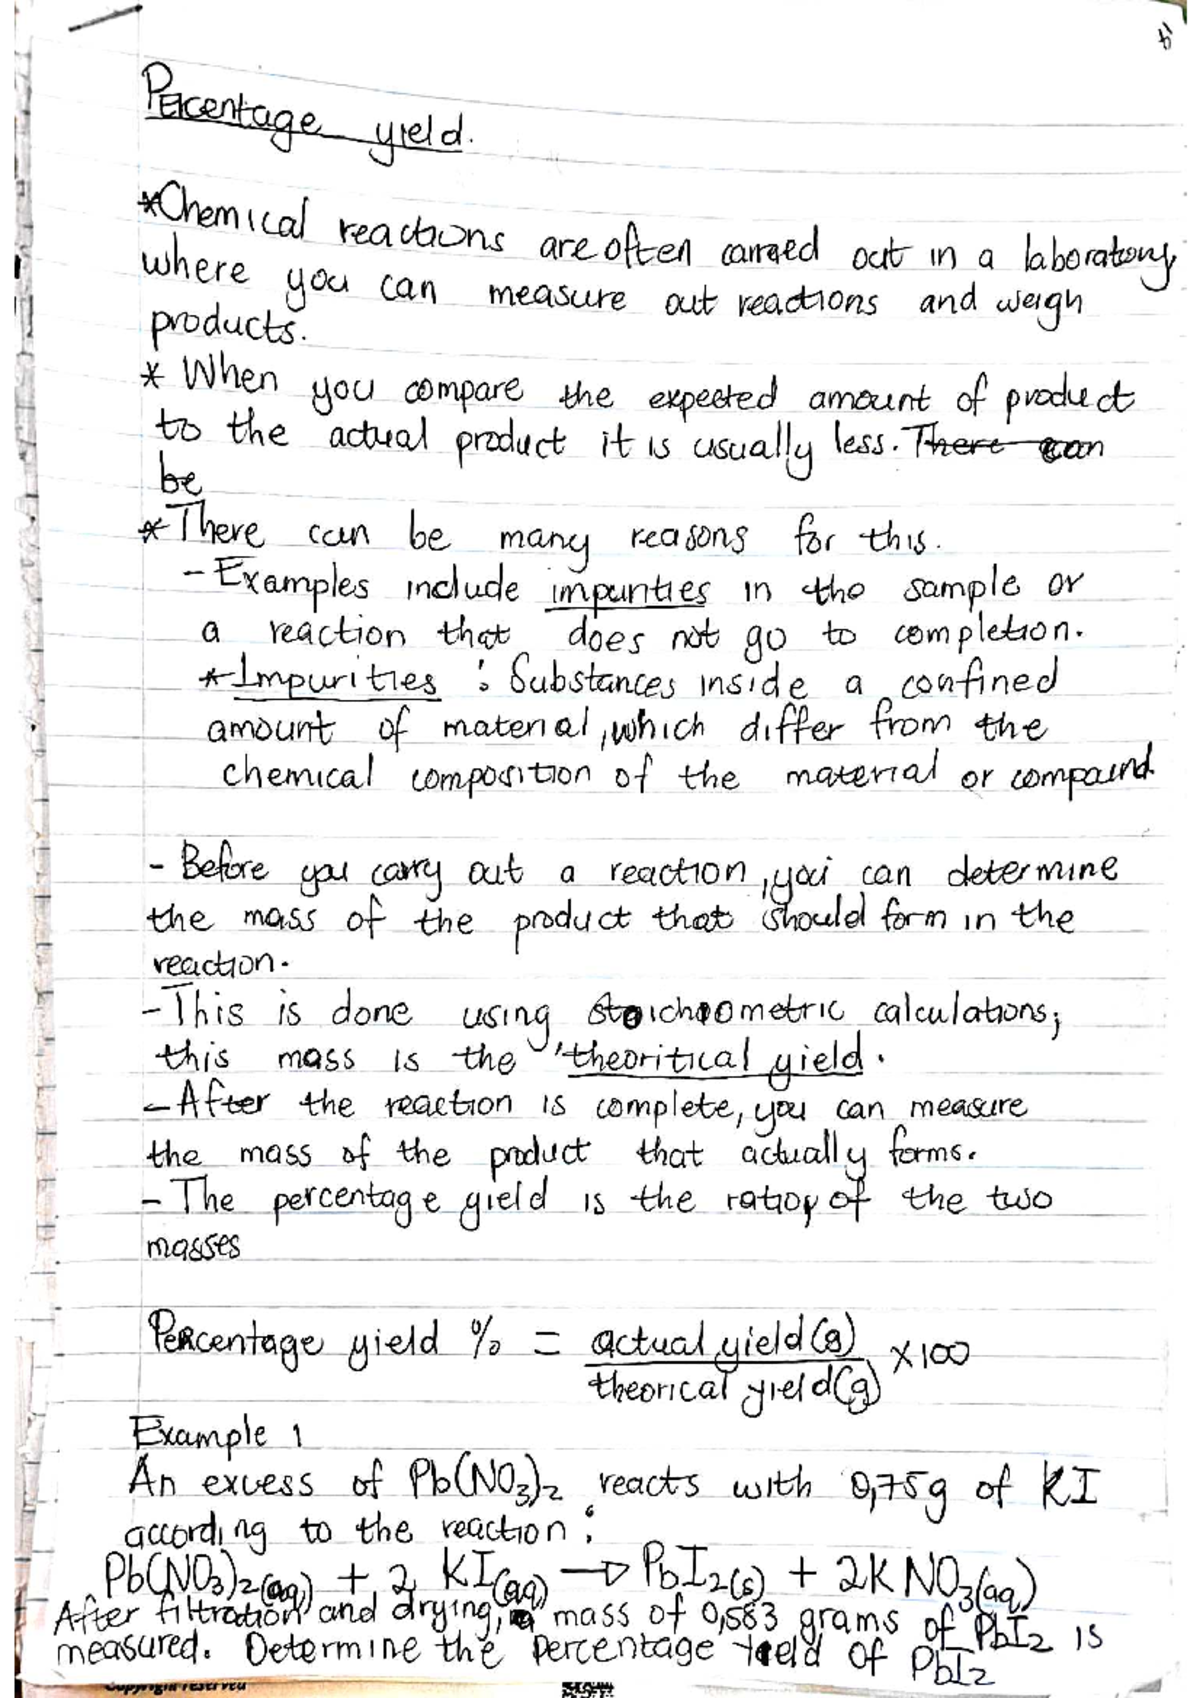 Percentage yield.
*Chemical reactions are often carried out in a laboratory,
where you can measure out reactions and weigh
products.
* When you compare the expected amount of product
to the actual product it is usually less. There can
be
* There can be many reasons for this.
- Examples include impurities in the sample or
a reaction that does not go to completion.
* Impurities : Substances inside a confined
amount of material, which differ from the
chemical composition of the material or compound.
- Before you carry out a reaction, you can determine
the mass of the product that should form in the
reaction.
- This is done using stoichiometric calculations;
this mass is the 'theoritical yield.
- After the reaction is complete, you can measure
the mass of the product that actually forms.
- The percentage yield is the ratio of the two
masses
Percentage yield % = actual yield(g)
theorical yield(g) ×100
Example 1
An excess of Pb(NO₃)₂ reacts with 0,75g of KI
according to the reaction :
Pb(NO₃)₂(aq) + 2 KI(aq) → PbI₂(s) + 2KNO₃(aq)
After filtration and drying, a mass of 0,583 grams of PbI₂ is
measured. Determine the percentage yield of PbI₂
Copyright reserved